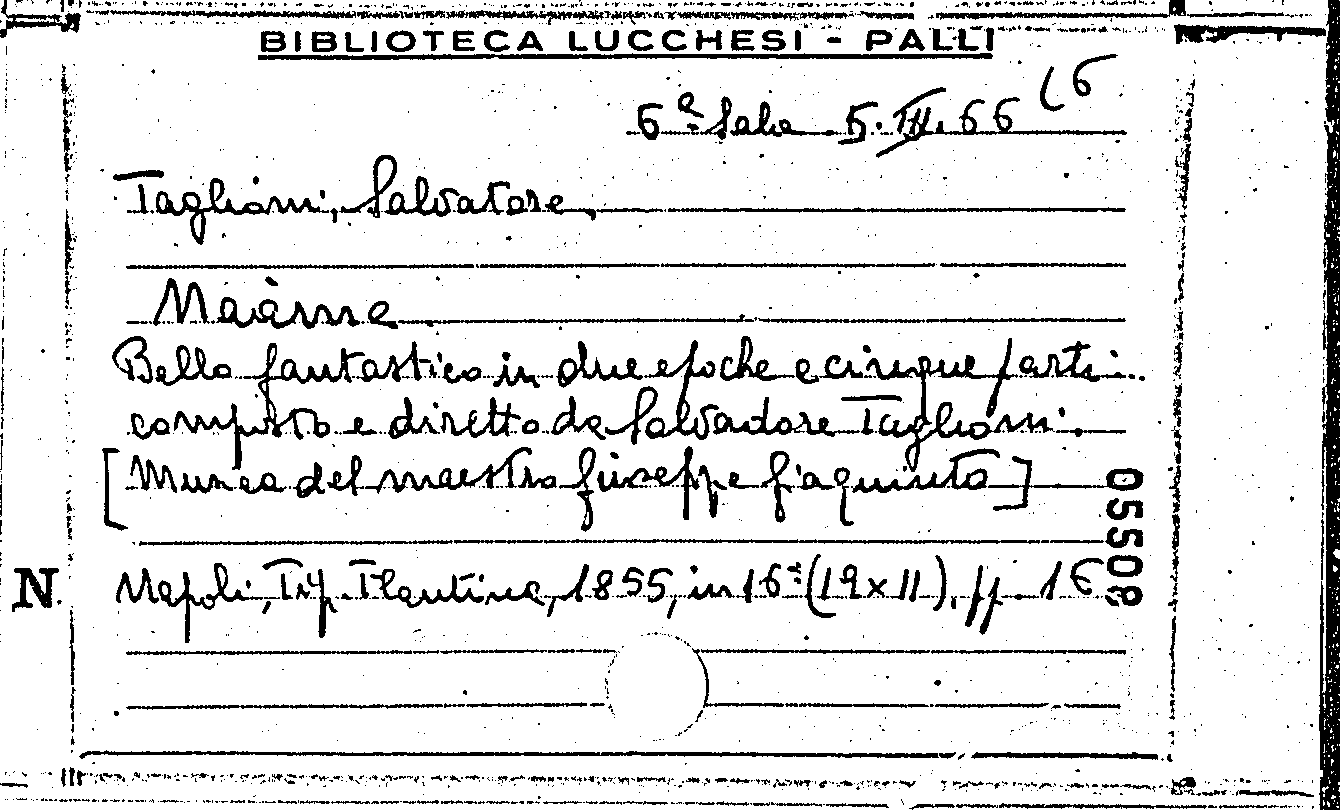 BIBLIOTECA LUCCHESI - PALLI
6ª Sala 5. III. 66 (6
Taglioni, Salvatore.
Maànne
Ballo fantastico in due epoche e cinque parti
composto e diretto da Salvadore Taglioni.
[Musica del maestro Giuseppe Giaquinto]
05508
N Napoli, Tip. Plautina, 1855, in 16º (19x11), pp. 16